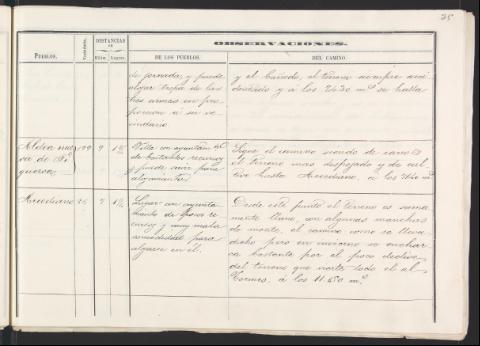 25
OBSERVACIONES.
DISTANCIAS
PUEBLOS.
DE LOS PUEBLOS.
DEL CAMINO.
de jornada, y puede
alojar tropa de las
tres armas en pro
porcion a su ve
cindario
y el Cañedo, el terreno siempre acci
dentado y a los 26.30 m.s se halla
Aldea nue
va de Fi
gueroa
99
7
Villa con ayuntam.to
de bastantes recursos
y puede servir para
alojamientos
Sigue el camino siendo de carros
el terreno mas despejado y de cul
tivo hasta Arcediano, a los
Arcediano
26
7
Lugar con ayunta
miento de pocos re
cursos y muy mala
comodidad para
alojarse en él.
Desde este punto el terreno es suma
mente llano, con algunas manchas
de monte, el camino como se lleva
dicho pero en invierno se encharca
bastante por el poco declive
del terreno que vierte todo el al
Tormes, a los 11.650 m.s